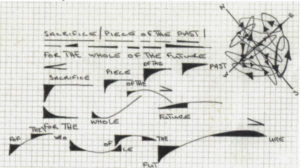 SACRIFICE / PIECE OF THE PAST /
FOR THE WHOLE OF THE FUTURE
OF THE PAST
PIECE
SACRIFICE
OF THE
FOR THE
WHOLE
FUTURE
FOR THE WHO OF THE URE
LE
FUT